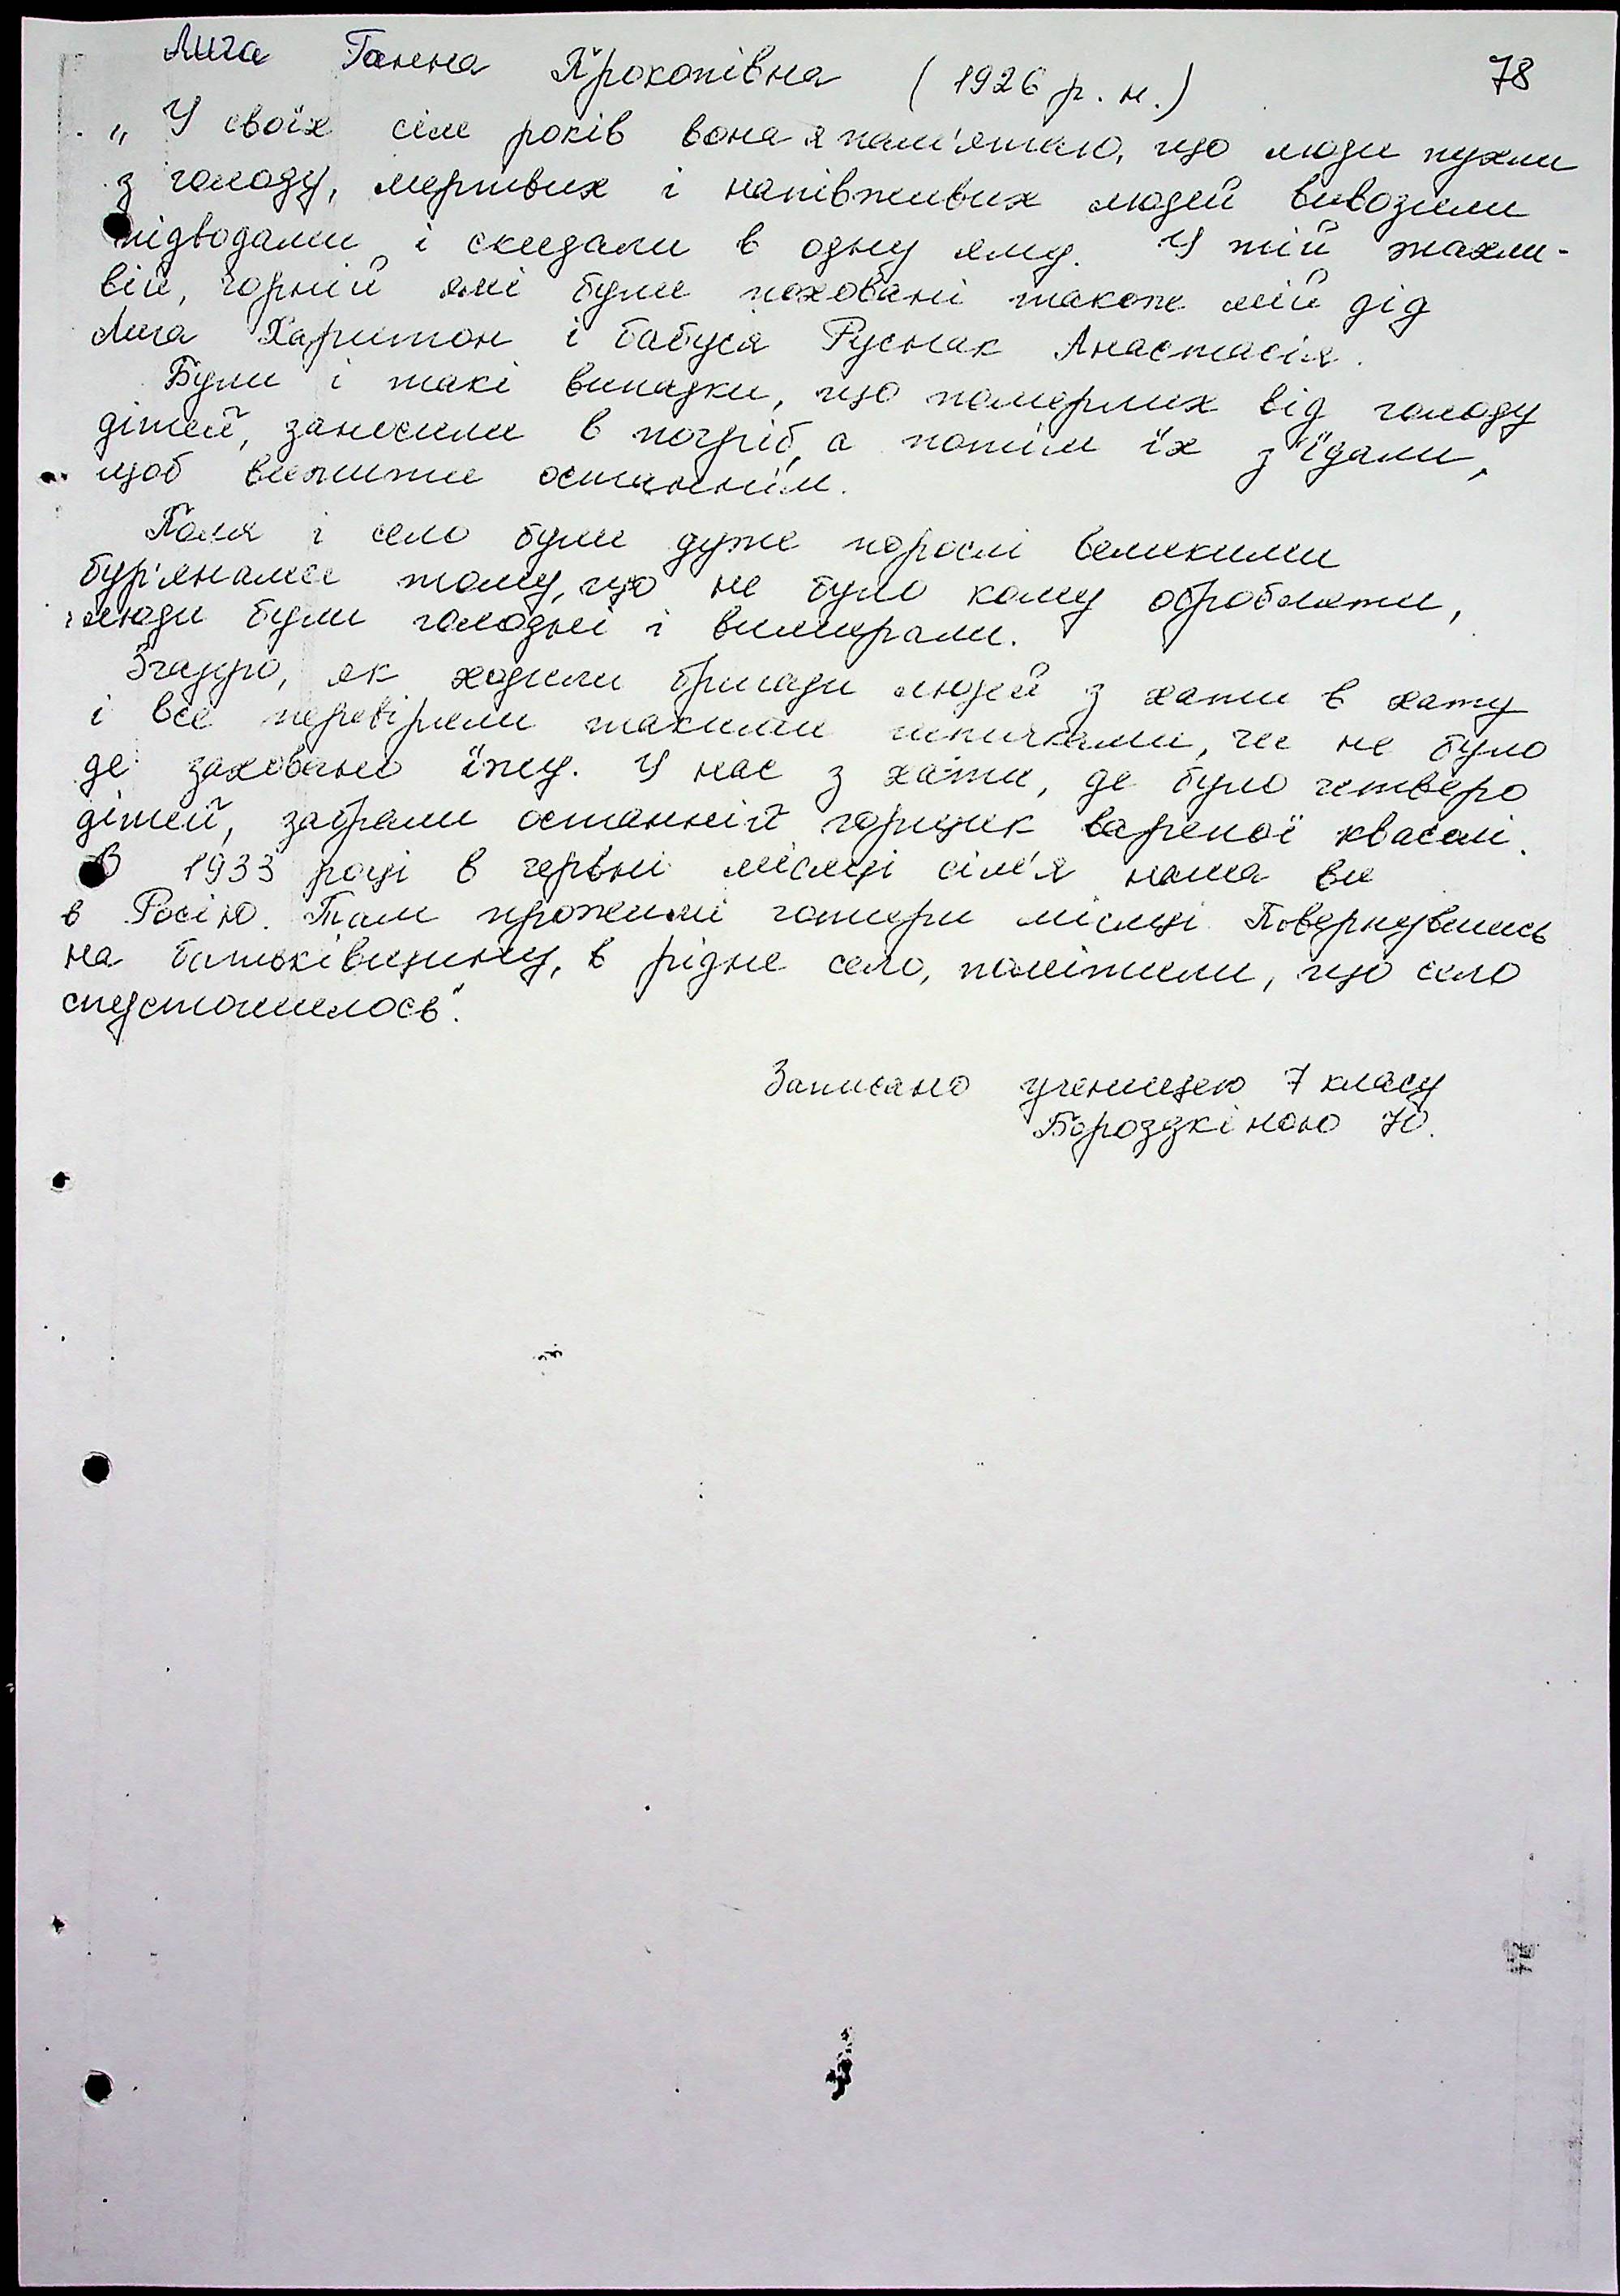 Лига Ганна Прокопівна (1926 р.н.)
78
„У своїх сім років вона я пам'ятаю, що люди пухли
з голоду, мертвих і напівживих людей вивозили
підводами і скидали в одну яму. У тій жахли-
вій, чорній ямі були поховані також мій дід
Лига Харитон і бабуся Руснак Анастасія.
Були і такі випадки, що померлих від голоду
дітей, заносили в погріб, а потім їх з'їдали,
щоб вижити останнім.
Поля і село були дуже порослі великими
бур'янами тому, що не було кому обробляти,
люди були голодні і вимирали.
Згадую, як ходили бригади людей з хати в хату
і все перевіряли такими шпичками, чи не було
де заховано їжу. У нас з хати, де було четверо
дітей, забрали останній горщик вареної квасолі.
В 1933 році в червні місяці сім'я наша ви
в Росію. Там прожили чотири місяці. Повернувшись
на батьківщину, в рідне село, помітили, що село
спустошилось".
Записано ученицею 7 класу
Бороздкіною Ю.